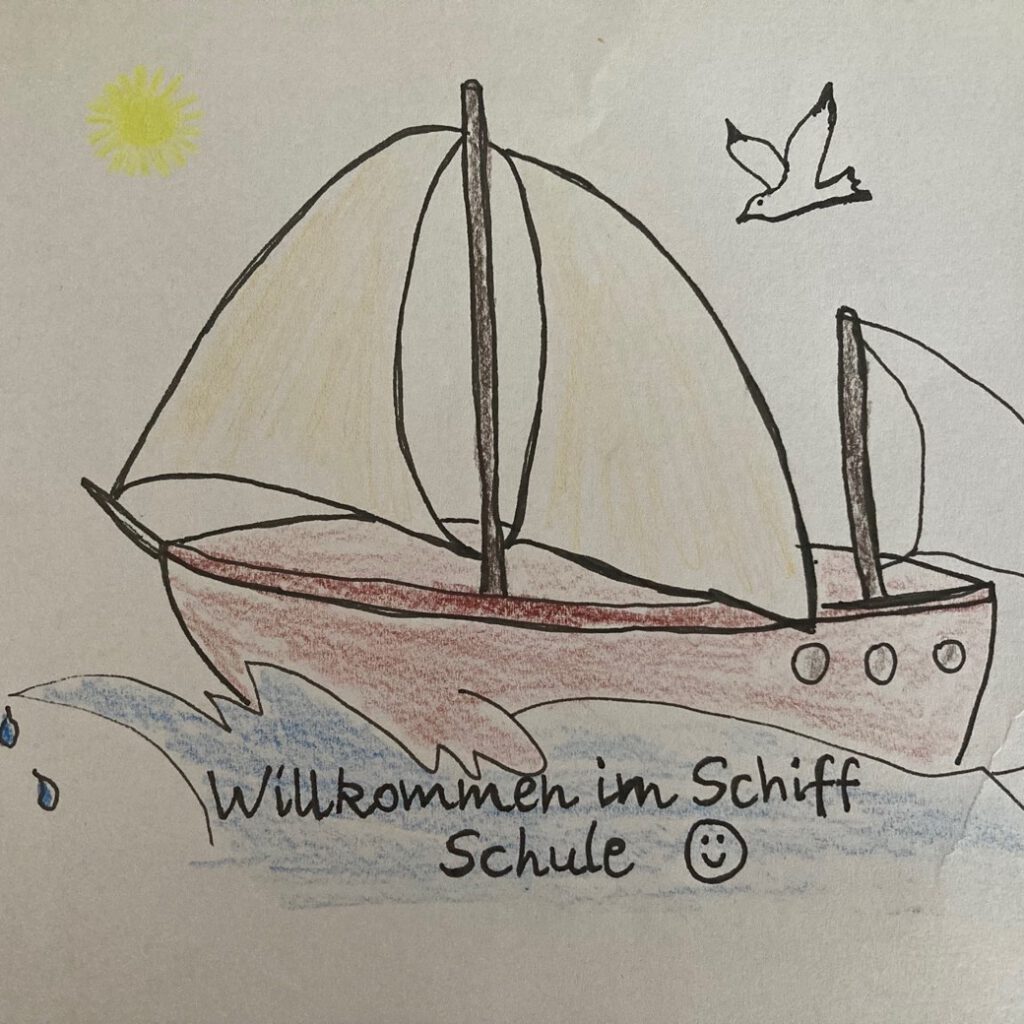 Willkommen im Schiff
Schule